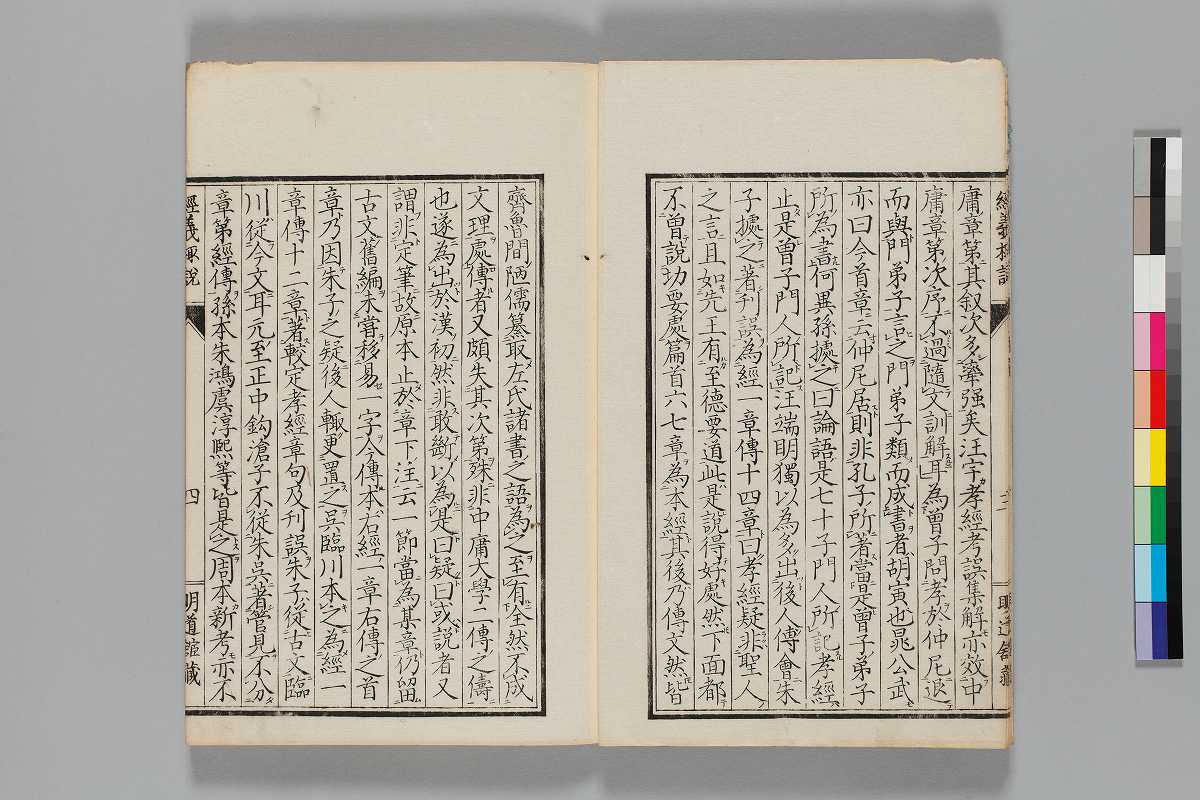 庸章第其叙次多牽强矣汪宇孝經考誤集解亦效中
庸章第次序不過隨文訓解耳為曾子問孝於仲尼退
而與門弟子言之門弟子類而成書者胡寅也晁公武
亦曰今首章云仲尼居則非孔子所著當是曾子弟子
所為書何異孫據之曰論語是七十子門人所記孝經
止是曾子門人所記汪端明獨以為多出後人傅會朱
子據之著刊誤為經一章傳十四章曰孝經疑非聖人
之言且如先王有至德要道此是說得好處然下面都
不曾說切要處篇首六七章為本經其後乃傳文然皆
齊魯間陋儒纂取左氏諸書之語為之至有全然不成
文理處傳者又頗失其次第殊非中庸大學二傳之儔
也遂為出於漢初然非敢斷以為是曰疑曰或說者又
謂非定筆故原本止於章下注云一節當為某章仍留
古文舊編未嘗移易一字今傳本右經一章右傳之首
章乃因朱子之疑後人輙更置之吳臨川本之為經一
章傳十二章著較定孝經章句及刊誤朱子從古文臨
川從今文耳元至正中鈎滄子不從朱吳著管見不分
章第經傳孫本朱鴻虞淳熙等皆是之周本新考亦不
經義
四
明道館藏